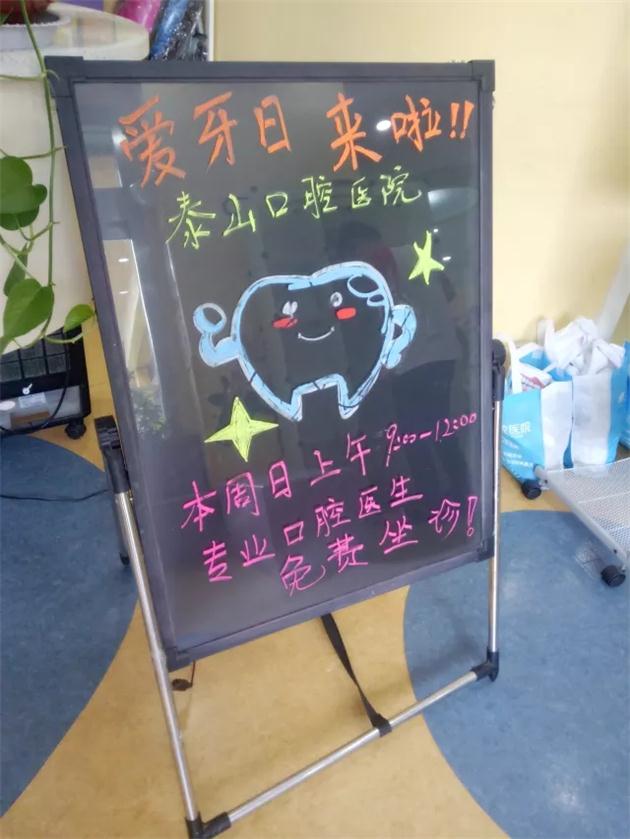 爱牙日来啦!!
泰山口腔医院
本周日上午9:00-12:00
专业口腔医生
免费坐诊!
医院